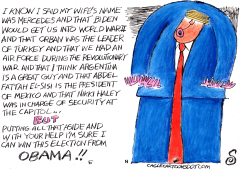 I KNOW I SAID MY WIFE'S NAME
WAS MERCEDES AND THAT BIDEN
WOULD GET US INTO WORLD WAR II
AND THAT ORBAN WAS THE LEADER
OF TURKEY AND THAT WE HAD AN
AIR FORCE DURING THE REVOLUTIONARY
WAR AND THAT I THINK ARGENTINA
IS A GREAT GUY AND THAT ABDEL-
FATTAH EL-SISI IS THE PRESIDENT
OF MEXICO AND THAT NIKKI HALEY
WAS IN CHARGE OF SECURITY AT
THE CAPITOL...
BUT
PUTTING ALL THAT ASIDE AND
WITH YOUR HELP I'M SURE I
CAN WIN THIS ELECTION FROM
OBAMA!!
CAGLECARTOONS.COM